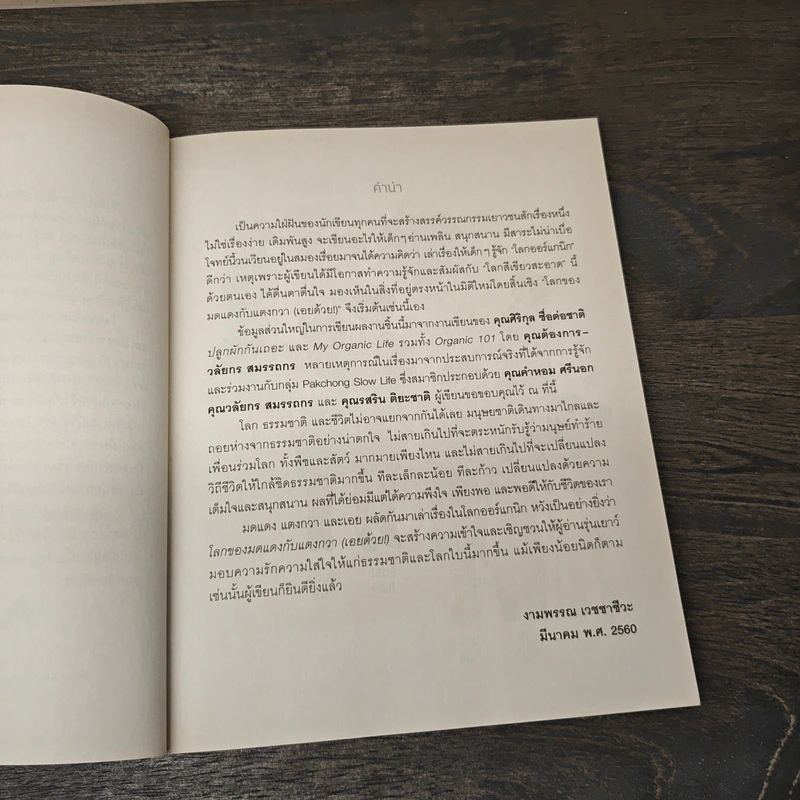 คำนำ
เป็นความใฝ่ฝันของนักเขียนทุกคนที่จะสร้างสรรค์วรรณกรรมเยาวชนสักเรื่องหนึ่ง
ไม่ใช่เรื่องง่าย เดิมพันสูง จะเขียนอะไรให้เด็กๆอ่านเพลิน สนุกสนาน มีสาระไม่น่าเบื่อ
โจทย์นี้วนเวียนอยู่ในสมองเรื่อยมาจนได้ความคิดว่า เล่าเรื่องให้เด็กๆรู้จัก “โลกออร์แกนิก”
ดีกว่า เหตุเพราะผู้เขียนได้มีโอกาสทำความรู้จักและสัมผัสกับ “โลกสีเขียวสะอาด” นี้
ด้วยตนเอง ได้ตื่นตาตื่นใจ มองเห็นในสิ่งที่อยู่ตรงหน้าในมิติใหม่โดยสิ้นเชิง “โลกของ
มดแดงกับแตงกวา (เอยด้วย!)” จึงเริ่มต้นเช่นนี้เอง
ข้อมูลส่วนใหญ่ในการเขียนผลงานชิ้นนี้มาจากงานเขียนของ คุณศิริกุล ซื่อต่อชาติ
ปลูกผักกันเถอะ และ My Organic Life รวมทั้ง Organic 101 โดย คุณต้องการ–
วลัยกร สมรรถกร หลายเหตุการณ์ในเรื่องมาจากประสบการณ์จริงที่ได้จากการรู้จัก
และร่วมงานกับกลุ่ม Pakchong Slow Life ซึ่งสมาชิกประกอบด้วย คุณคำหอม ศรีนอก
คุณวลัยกร สมรรถกร และ คุณรสริน ติยะชาติ ผู้เขียนขอขอบคุณไว้ ณ ที่นี้
โลก ธรรมชาติ และชีวิตไม่อาจแยกจากกันได้เลย มนุษยชาติเดินทางมาไกลและ
ถอยห่างจากธรรมชาติอย่างน่าตกใจ ไม่สายเกินไปที่จะตระหนักรับรู้ว่ามนุษย์ทำร้าย
เพื่อนร่วมโลก ทั้งพืชและสัตว์ มากมายเพียงไหน และไม่สายเกินไปที่จะเปลี่ยนแปลง
วิถีชีวิตให้ใกล้ชิดธรรมชาติมากขึ้น ทีละเล็กละน้อย ทีละก้าว เปลี่ยนแปลงด้วยความ
เต็มใจและสนุกสนาน ผลที่ได้ย่อมมีแต่ได้ความพึงใจ เพียงพอ และพอดีให้กับชีวิตของเรา
มดแดง แตงกวา และเอย ผลัดกันมาเล่าเรื่องในโลกออร์แกนิก หวังเป็นอย่างยิ่งว่า
โลกของมดแดงกับแตงกวา (เอยด้วย!) จะสร้างความเข้าใจและเชิญชวนให้ผู้อ่านรุ่นเยาว์
มอบความรักความใส่ใจให้แก่ธรรมชาติและโลกใบนี้มากขึ้น แม้เพียงน้อยนิดก็ตาม
เช่นนั้นผู้เขียนก็ยินดียิ่งแล้ว
งามพรรณ เวชชาชีวะ
มีนาคม พ.ศ. 2560